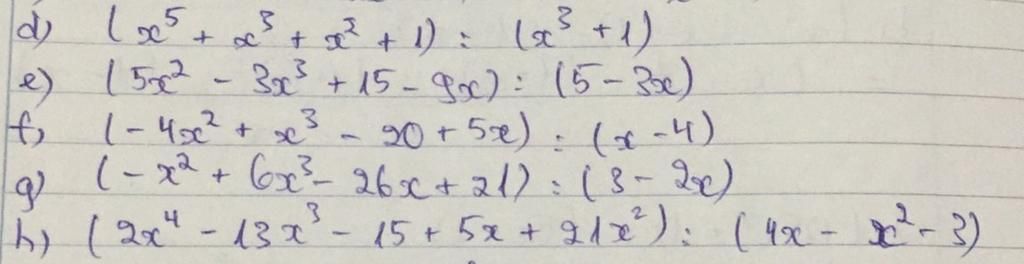 d) (x⁵ + x³ + x² + 1) : (x³ + 1)
e) (5x² - 3x³ + 15 - 9x) : (5 - 3x)
f) (-4x² + x³ - 20 + 5x) : (x - 4)
g) (-x² + 6x³ - 26x + 21) : (3 - 2x)
h) (2x⁴ - 13x³ - 15 + 5x + 21x²) : (4x - x² - 3)